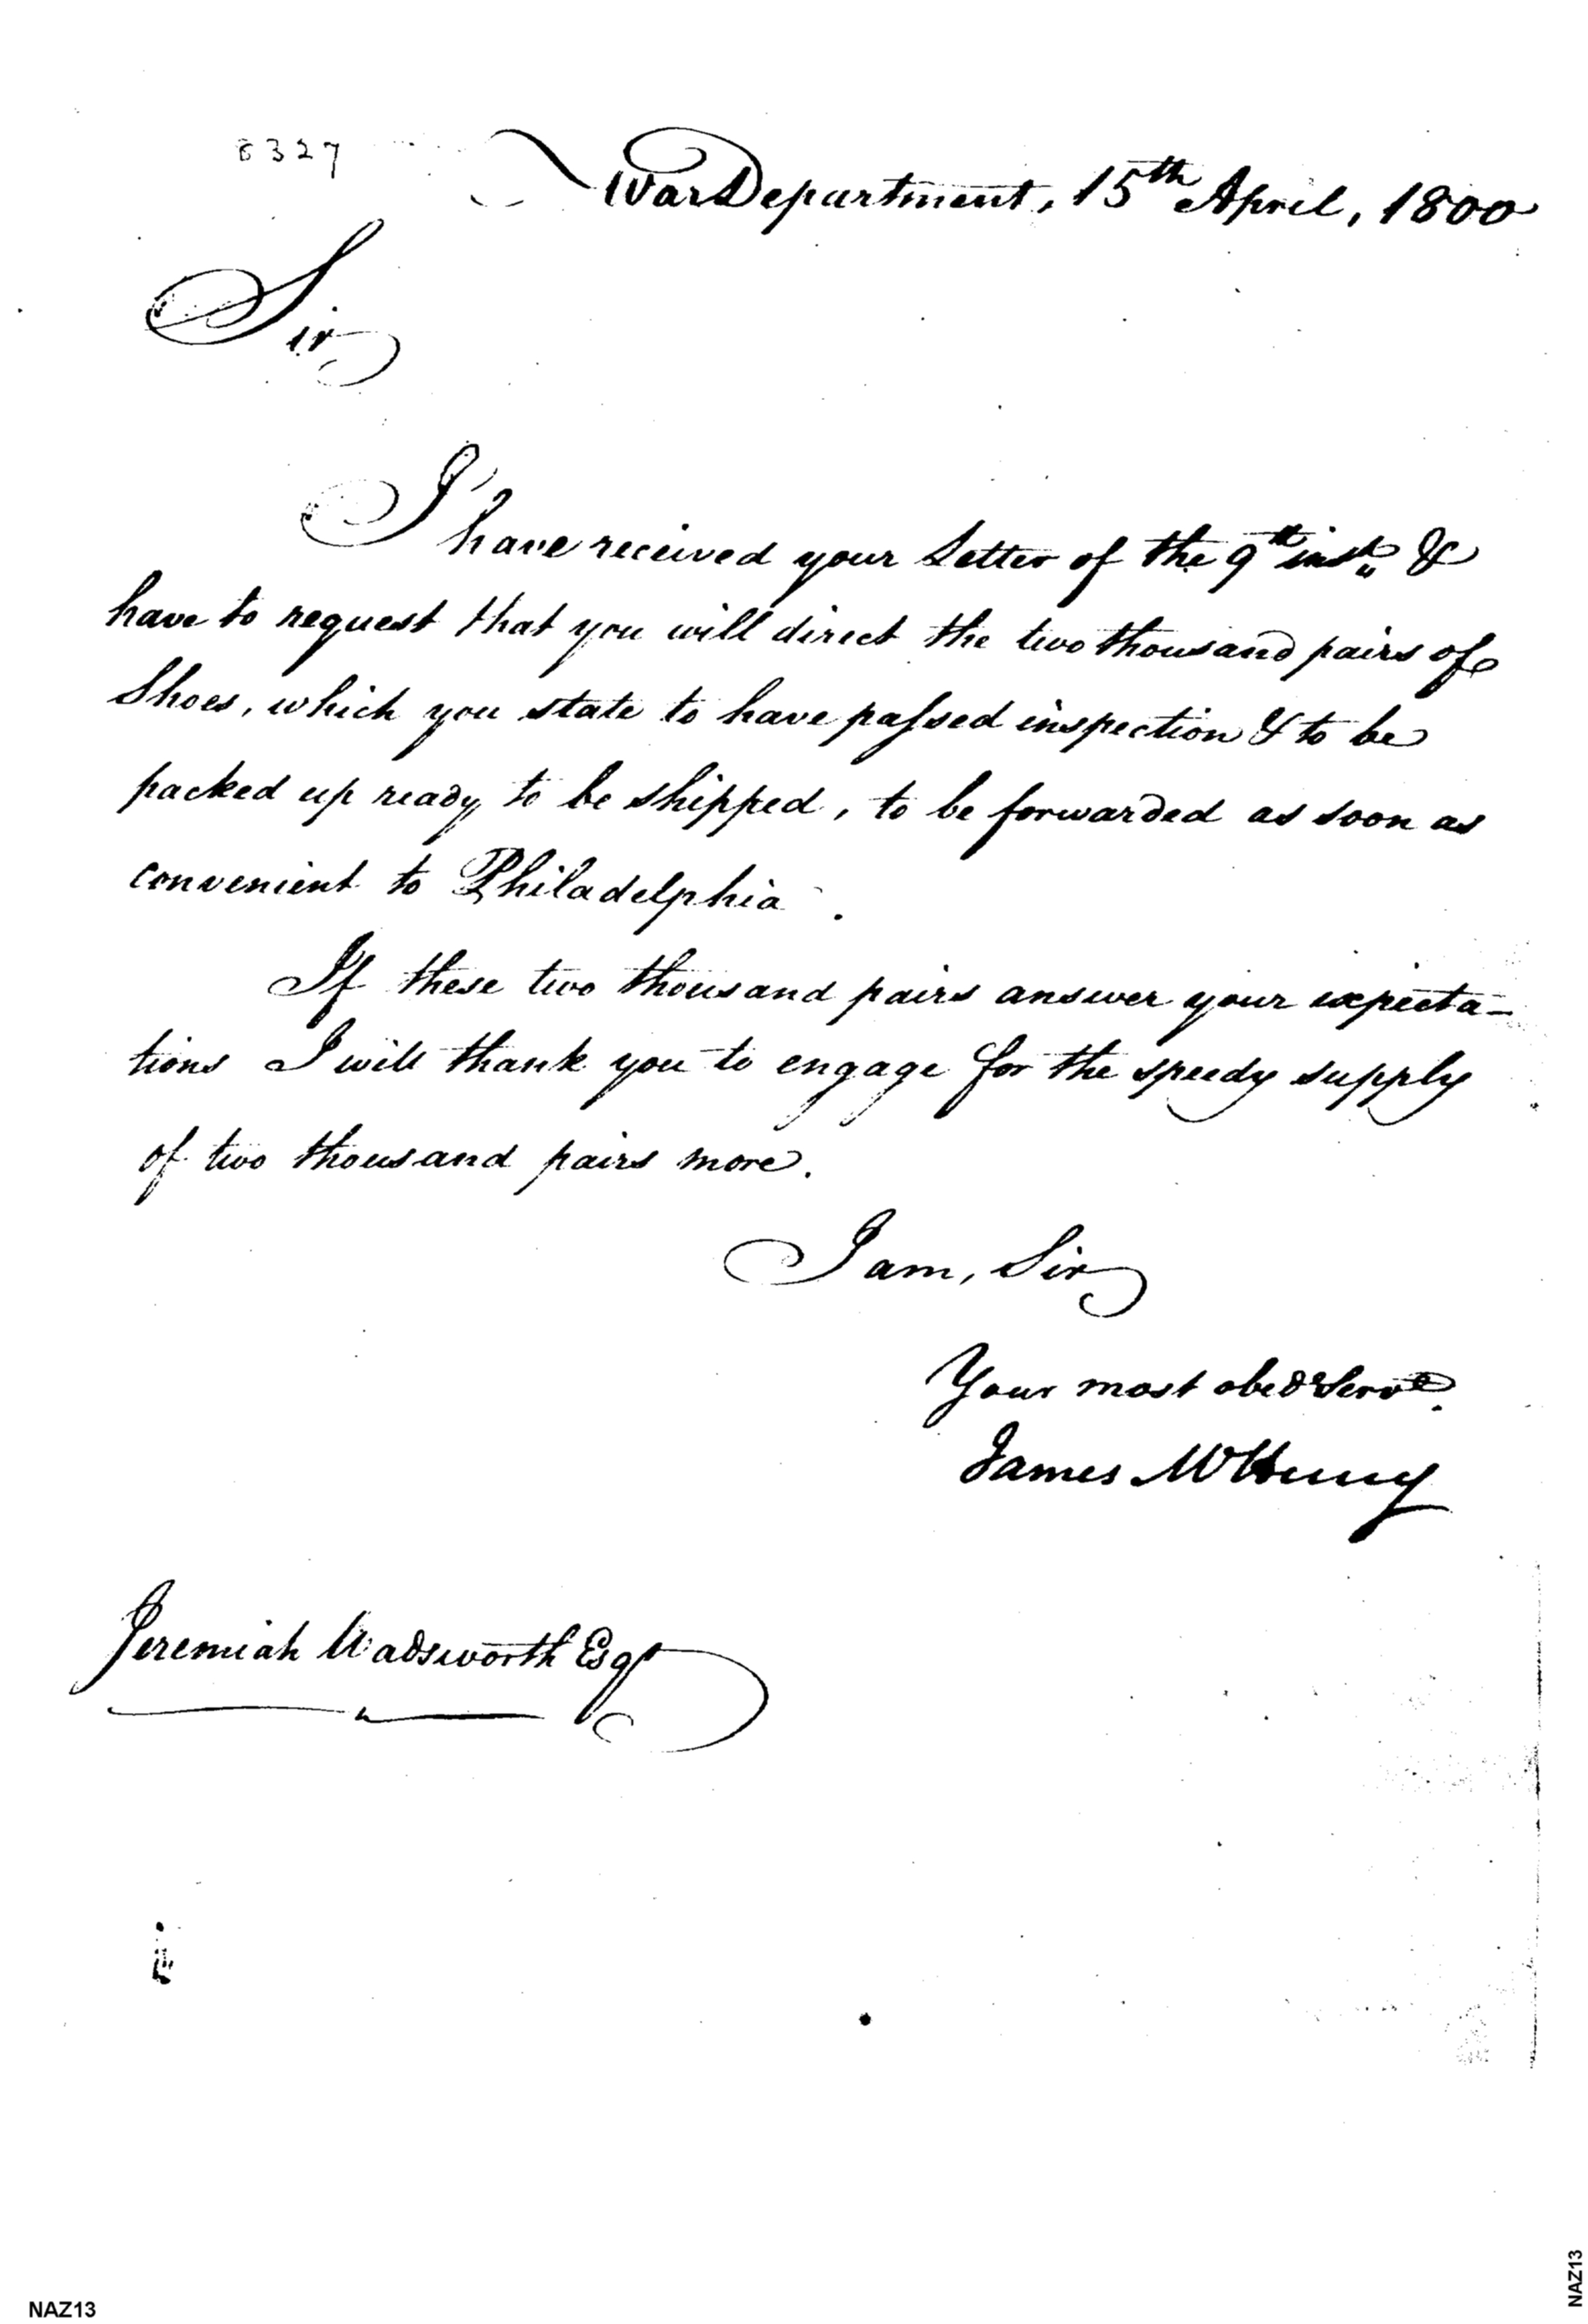 6327
War Department, 15th April, 1800
Sir
I have received your Letter of the 9th inst. &
have to request that you will direct the two thousand pairs of
Shoes, which you state to have paſsed inspection & to be
packed up ready to be shipped, to be forwarded as soon as
convenient to Philadelphia.
If these two thousand pairs answer your expecta-
tions I will thank you to engage for the speedy supply
of two thousand pairs more.
I am, Sir
Your most obedt Servt.
James McHenry
Jeremiah Wadsworth Esqr
NAZ13
NAZ13